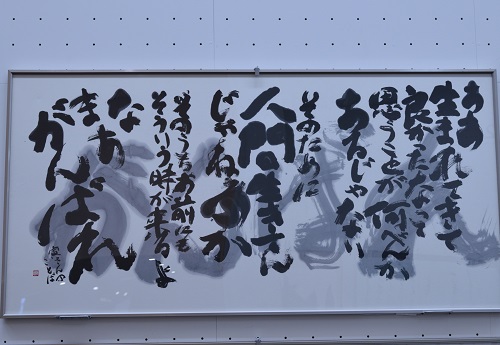 ああ
生まれてきて
良かったなって
思うことが何べんか
あるじゃない
そのために
人間生きてん
じゃねえのか
そのうちお前にも
そういう時が来るよ
なあ
まあ
がんばれ
寅さんの
ことば